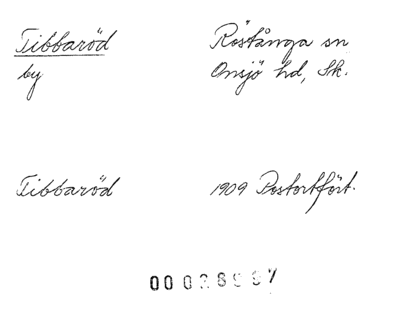 Tibbaröd Röstånga sn
by Onsjö hd, Sk.
Tibbaröd 1909 Postortfört.